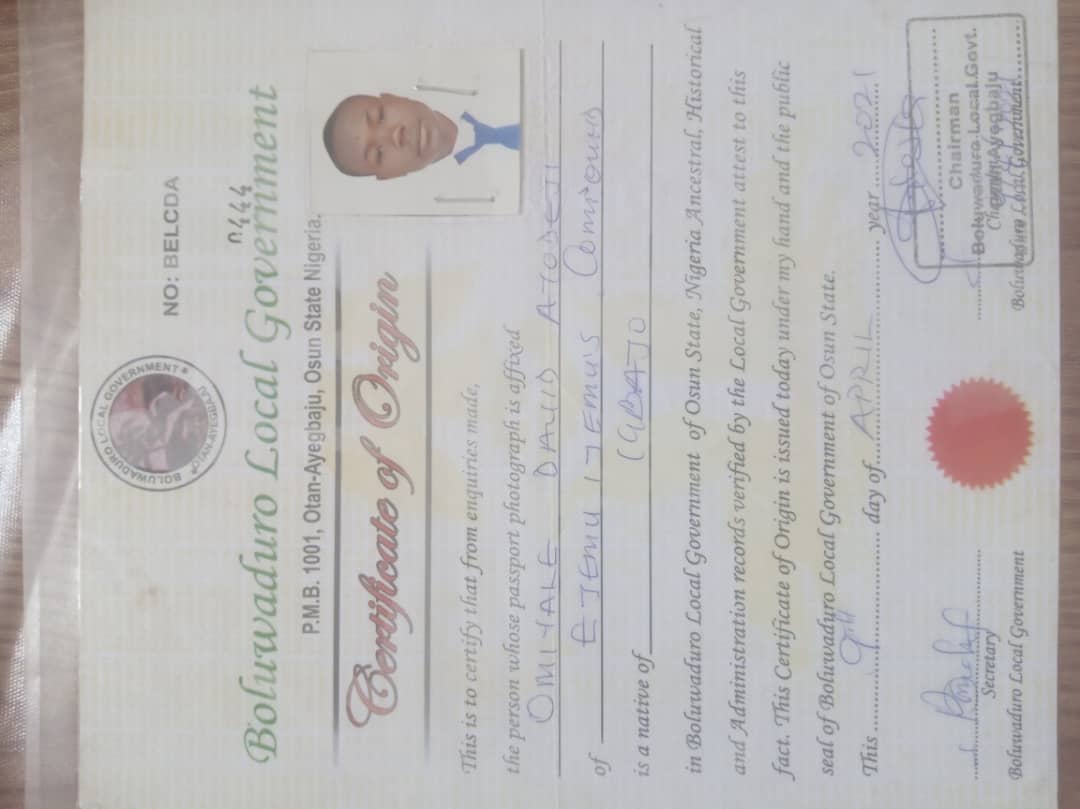 BOLUWADURO LOCAL GOVERNMENT
OTAN-AYEGBAJU
NO: BELCDA
0444
Boluwaduro Local Government
P.M.B. 1001, Otan-Ayegbaju, Osun State Nigeria.
Certificate of Origin
This is to certify that from enquiries made,
the person whose passport photograph is affixed
OMIYALE DAVID
of EJEMU IJEMU'S Compound
is a native of IGBAJO
in Boluwaduro Local Government of Osun State, Nigeria Ancestral, Historical
and Administration records verified by the Local Government attest to this
fact. This Certificate of Origin is issued today under my hand and the public
seal of Boluwaduro Local Government of Osun State.
This 9th day of APRIL year 2021
Secretary
Boluwaduro Local Government
Chairman
Boluwaduro Local Govt.
Otan-Ayegbaju
Chairman
Boluwaduro Local Government